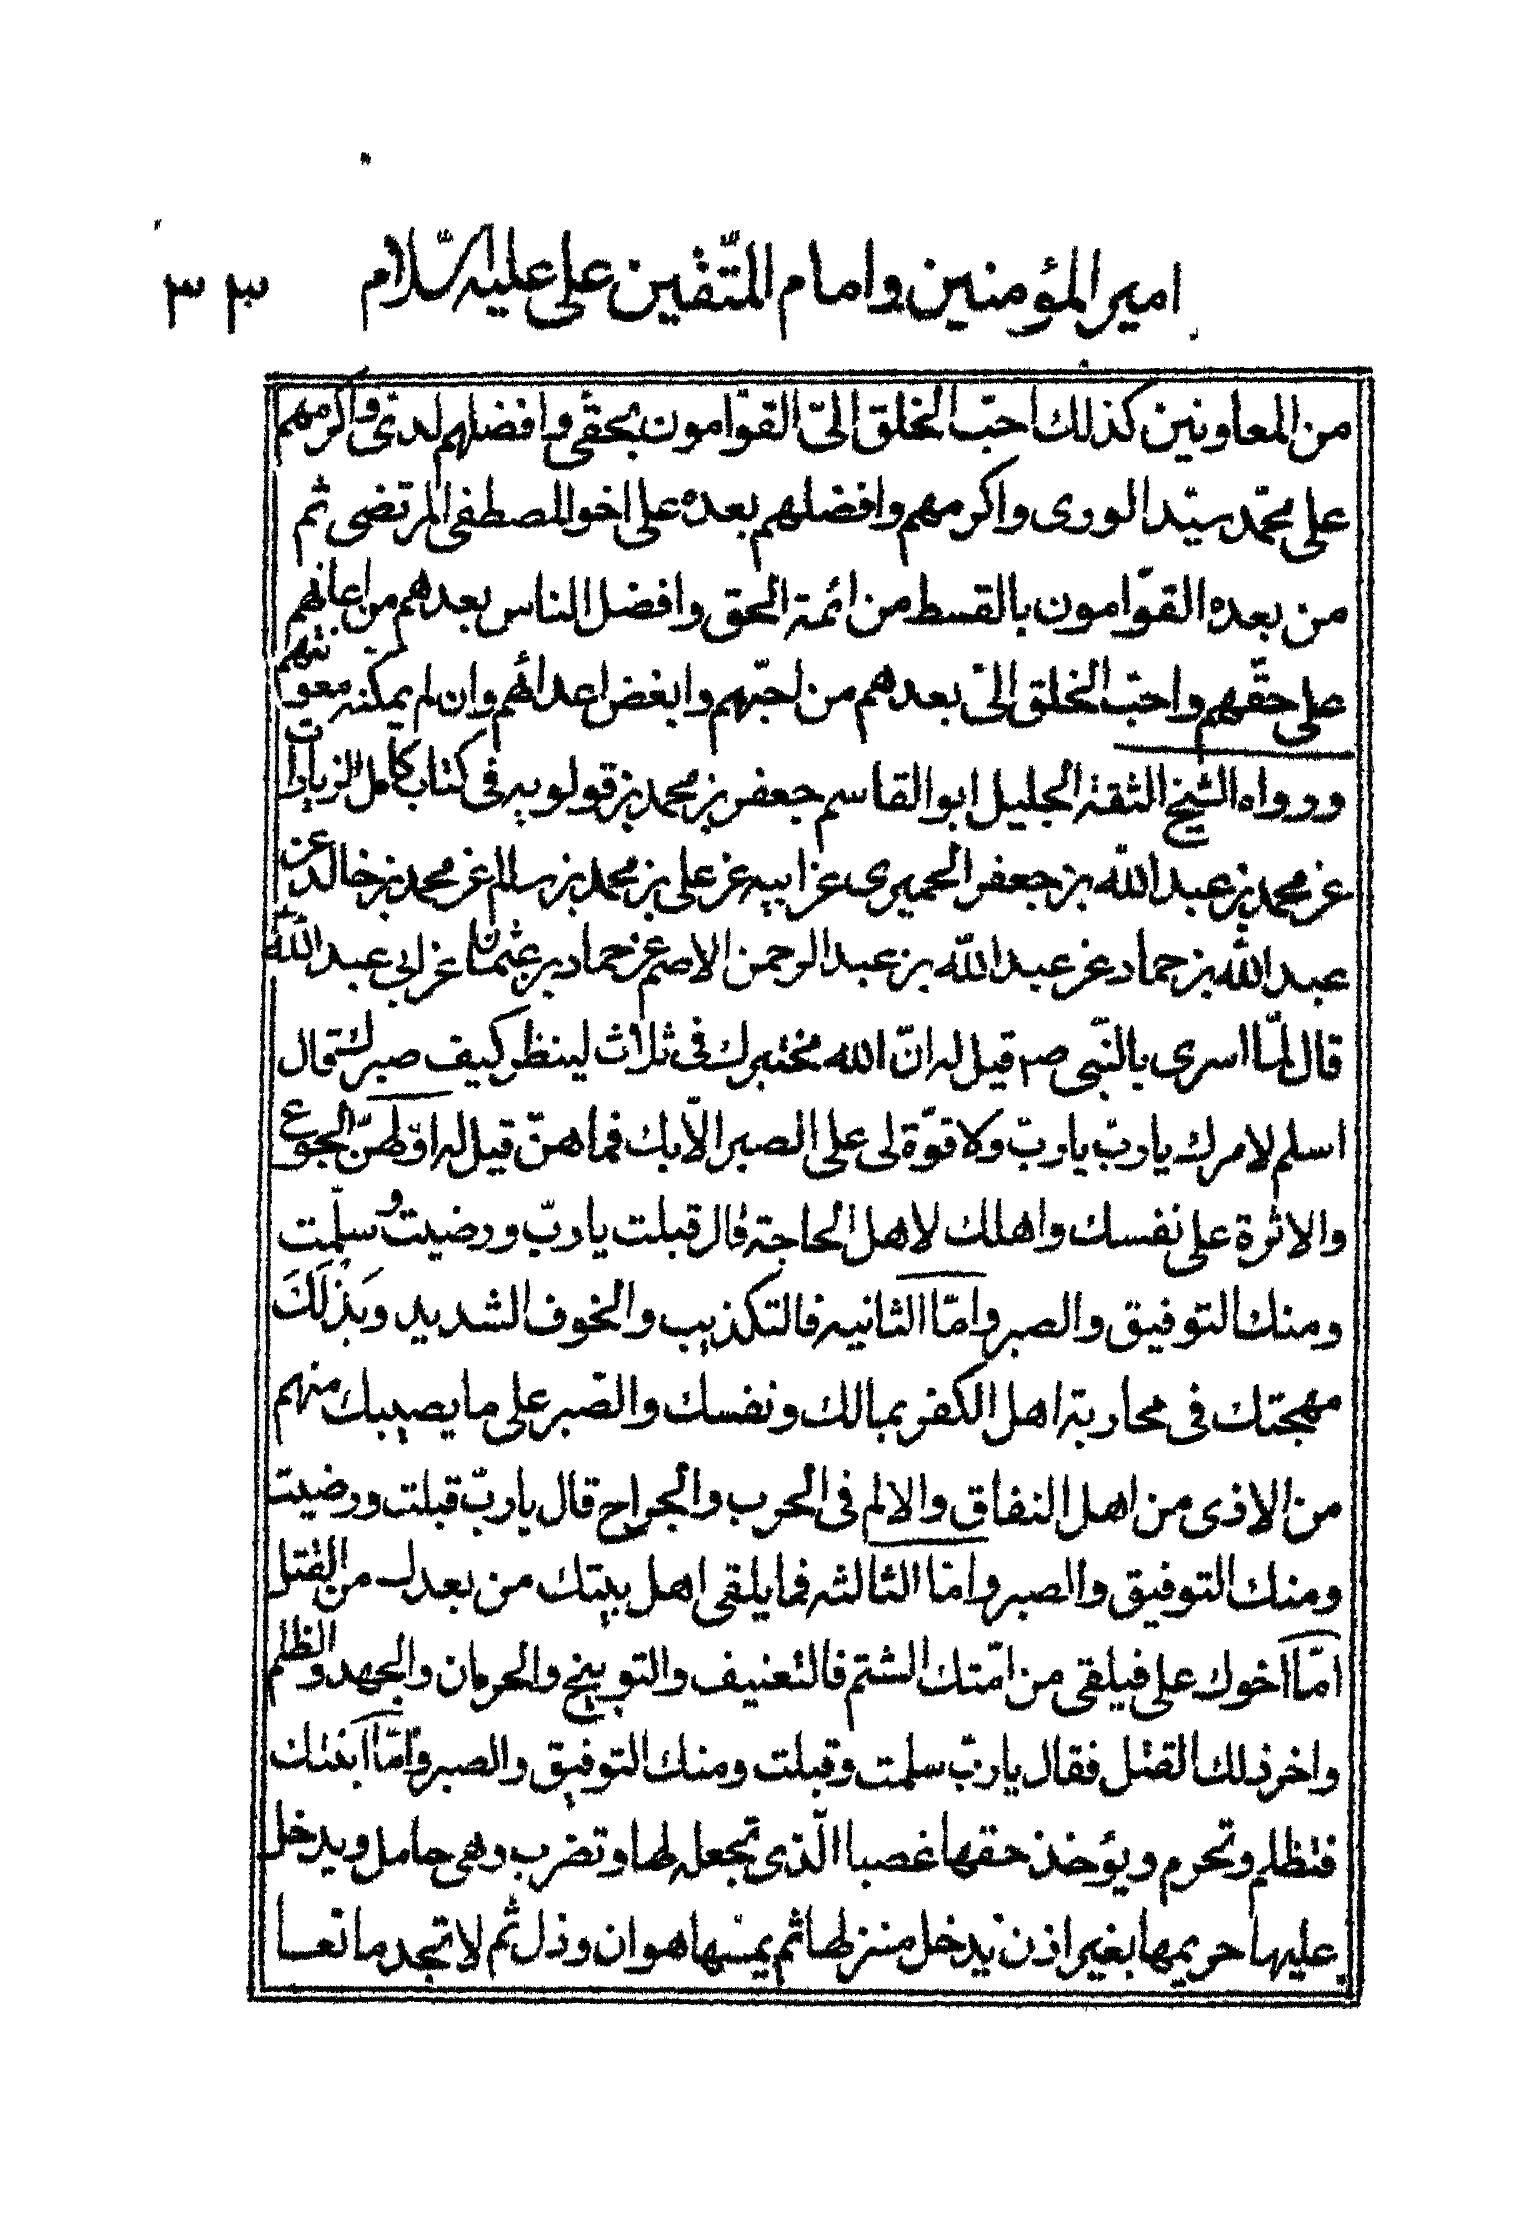 امير المؤمنين وامام المتّقين على عليه السّلام ٣٣
من المعاونين كذلك احبّ الخلق الىّ القوّامون بحقّى وافضلهم لدىّ واكرمهم
على محمّد سيّد الورى واكرمهم وافضلهم بعده على اخو المصطفى المرتضى ثم
من بعده القوّامون بالقسط من ائمة الحق وافضل الناس بعدهم من اعانهم
على حقّهم واحبّ الخلق الىّ بعدهم من احبّهم وابغض اعدائهم وان لم يمكنه معونتهم
ورواه الشيخ الثقة الجليل ابو القاسم جعفر بن محمد بن قولويه فى كتاب كامل الزيارات
عن محمد بن عبد الله بن جعفر الحميرى عن ابيه عن على بن محمد بن سالم عن محمد بن خالد عن
عبد الله بن حماد عن عبد الله بن عبد الرحمن الاصم عن حماد بن عثمان عن ابى عبد الله
قال لمّا اسرى بالنّبى ص قيل له انّ الله مختبرك فى ثلاث لينظر كيف صبرك قال
اسلم لامرك يا ربّ يا ربّ ولا قوّة لى على الصبر الّا بك فما هنّ قيل له اوّلهنّ الجوع
والاثرة على نفسك واهلك لاهل الحاجة قال قبلت يا ربّ ورضيت وسلّمت
ومنك التوفيق والصبر وامّا الثانيه فالتكذيب والخوف الشديد وبذلك
مهجتك فى محاربة اهل الكفر بمالك ونفسك والصّبر على ما يصيبك منهم
من الاذى من اهل النفاق والالم فى الحرب والجراح قال يا ربّ قبلت ورضيت
ومنك التوفيق والصبر وامّا الثالثه فما يلقى اهل بيتك من بعدك من القتل
امّا اخوك على فيلقى من امّتك الشتم فالتعنيف والتوبيخ والحرمان والجهد والظلم
واخر ذلك القتل فقال يا ربّ سلمت وقبلت ومنك التوفيق والصبر وامّا ابنتك
فتظلم وتحرم ويؤخذ حقها غصبا الّذى تجعله لها وتضرب وهى حامل ويدخل
عليها حريمها بغير اذن يدخل منزلها ثم يمسها هوان وذل ثم لا تجد مانعا